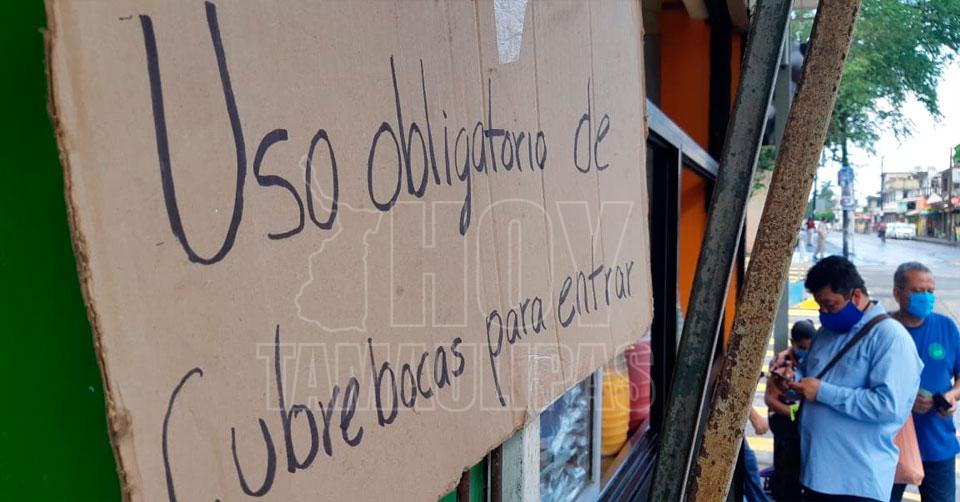 Uso obligatorio de
Cubrebocas para entrar
HOY
TAMAULIPAS